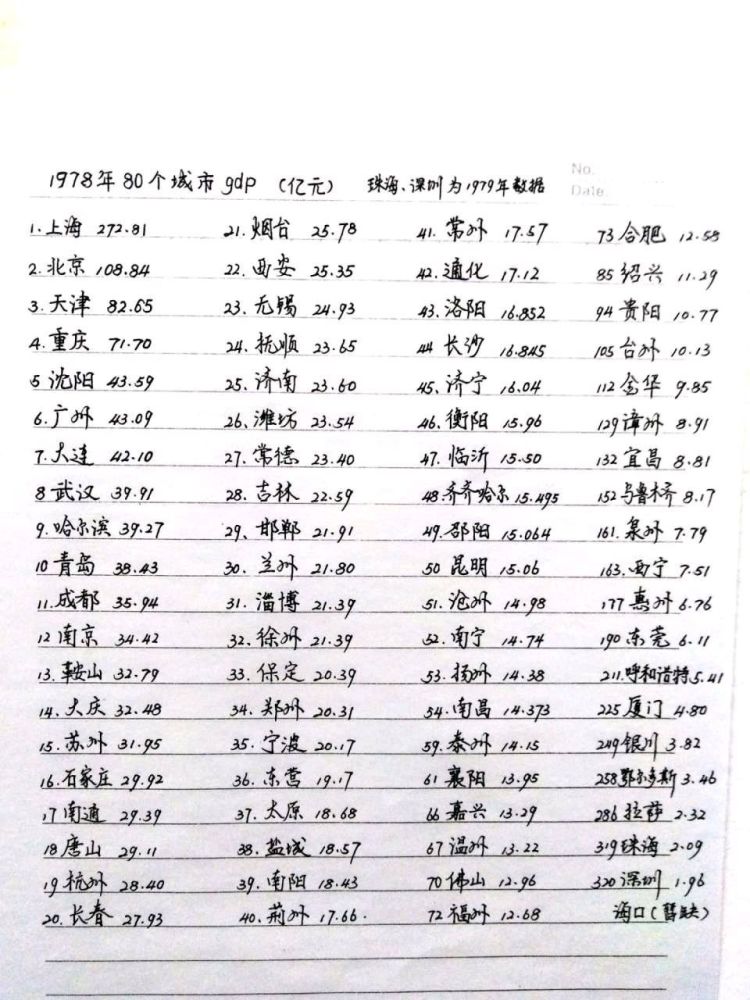 No.
1978年80个城市gdp (亿元) 珠海、深圳为1979年数据
Date.
1.上海 272.81 21.烟台 25.78 41.常州 17.57 73合肥 12.58
2.北京 108.84 22.西安 25.35 42.通化 17.12 85绍兴 11.29
3.天津 82.65 23.无锡 24.93 43.洛阳 16.852 94贵阳 10.77
4.重庆 71.70 24.抚顺 23.65 44长沙 16.845 105台州 10.13
5沈阳 43.59 25.济南 23.60 45.济宁 16.04 112金华 9.85
6.广州 43.09 26.潍坊 23.54 46.衡阳 15.96 129漳州 8.91
7.大连 42.10 27.常德 23.40 47.临沂 15.50 132宜昌 8.81
8武汉 39.91 28.吉林 22.59 48齐齐哈尔 15.495 152乌鲁木齐 8.17
9.哈尔滨 39.27 29.邯郸 21.91 49.邵阳 15.064 161.泉州 7.79
10青岛 38.43 30.兰州 21.80 50昆明 15.06 163.西宁 7.51
11.成都 35.94 31.淄博 21.39 51.沧州 14.98 177惠州 6.76
12南京 34.42 32.徐州 21.39 52.南宁 14.74 190东莞 6.11
13.鞍山 32.79 33.保定 20.39 53.扬州 14.38 211.呼和浩特 5.41
14.大庆 32.48 34.郑州 20.31 54.南昌 14.373 225厦门 4.80
15.苏州 31.95 35.宁波 20.17 59.泰州 14.15 249银川 3.82
16.石家庄 29.92 36.东营 19.17 61襄阳 13.95 258鄂尔多斯 3.46
17南通 29.39 37.太原 18.68 66嘉兴 13.29 286拉萨 2.32
18唐山 29.11 38.盐城 18.57 67温州 13.22 319珠海 2.09
19杭州 28.40 39.南阳 18.43 70佛山 12.96 320深圳 1.96
20.长春 27.93 40.荆州 17.66. 72福州 12.68 海口(暂缺)